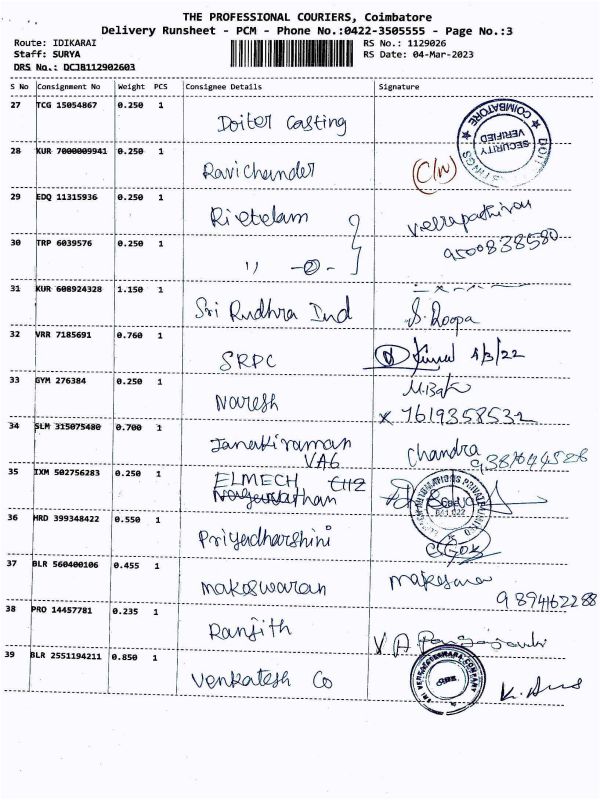 THE PROFESSIONAL COURIERS, Coimbatore
Delivery Runsheet - PCM - Phone No.:0422-3505555 - Page No.:3
Route: IDIKARAI
RS No.: 1129026
Staff: SURYA
RS Date: 04-Mar-2023
DRS No.: DCJB112902603
S No Consignment No Weight PCS Consignee Details Signature
27 TCG 15054867 0.250 1
Doiter Casting
COIMBATORE
SECURITY
VERIFIED
28 KUR 7000009941 0.250 1
Ravichander
29 EDQ 11315936 0.250 1
Rietelam
9500838580
30 TRP 6039576 0.250 1
11 -②-
31 KUR 608924328 1.150 1
Sri Rudhra Ind S. Roopa
32 VRR 7185691 0.760 1
SRPC
33 GYM 276384 0.250 1
Naresh
x 7619358532
34 SLM 315075480 0.700 1
Janakiraman Chandra
VA6
35 IXM 502756283 0.250 1
ELMECH
36 HRD 399348422 0.550 1
Priyadharshini
37 BLR 560400106 0.455 1
Makeswaran
9894162288
38 PRO 14457781 0.235 1
Ranjith
39 BLR 2551194211 0.850 1
Venkatesh Co